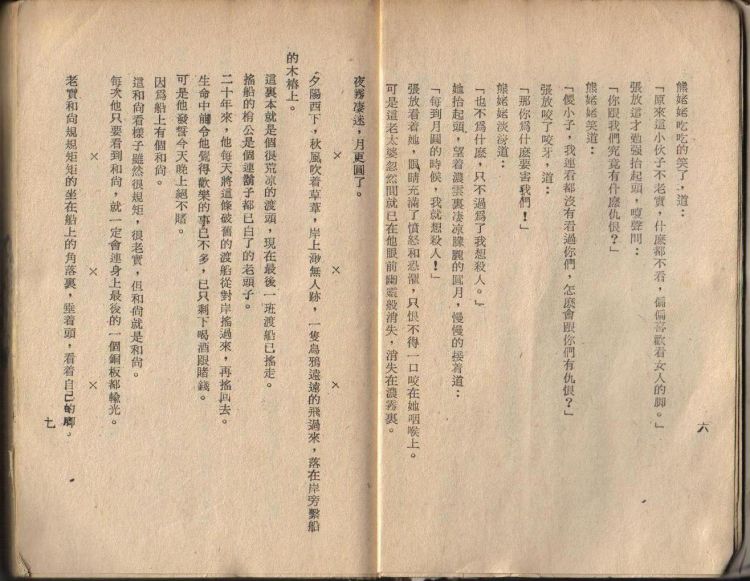 六
熊姥姥吃吃的笑了，道：
「原來這小伙子不老實，什麼都不看，偏偏喜歡看女人的脚。」
張放這才勉强抬起頭，嗄聲問：
「你跟我們究竟有什麼仇恨？」
熊姥姥笑道：
「傻小子，我連看都沒有看過你們，怎麼會跟你們有仇恨？」
張放咬了咬牙，道：
「那你爲什麼要害我們！」
熊姥姥淡淡道：
「也不爲什麼，只不過爲了我想殺人。」
她抬起頭，望着濃雲裏凄凉朦朧的圓月，慢慢的接着道：
「每到月圓的時候，我就想殺人！」
張放看着她，眼睛充滿了憤怒和恐懼，只恨不得一口咬在她咽喉上。
可是這老太婆忽然間就已在他眼前幽靈般消失，消失在濃霧裏。
夜霧凄迷，月更圓了。
× × ×
夕陽西下，秋風吹着草葦，岸上渺無人跡，一隻烏鴉遠遠的飛過來，落在岸旁繫船
的木樁上。
這裏本就是個很荒凉的渡頭，現在最後一班渡船已搖走。
搖船的梢公是個連鬍子都已白了的老頭子。
二十年來，他每天將這條破舊的渡船從對岸搖過來，再搖回去。
生命中能令他覺得歡樂的事已不多，已只剩下喝酒跟賭錢。
可是他發誓今天晚上絕不賭。
因爲船上有個和尚。
這和尚看樣子雖然很規矩，很老實，但和尚就是和尚。
每次他只要看到和尚，就一定會連身上最後的一個銅板都輸光。
× × ×
老實和尚規規矩矩的坐在船上的角落裏，垂着頭，看着自己的脚。
七